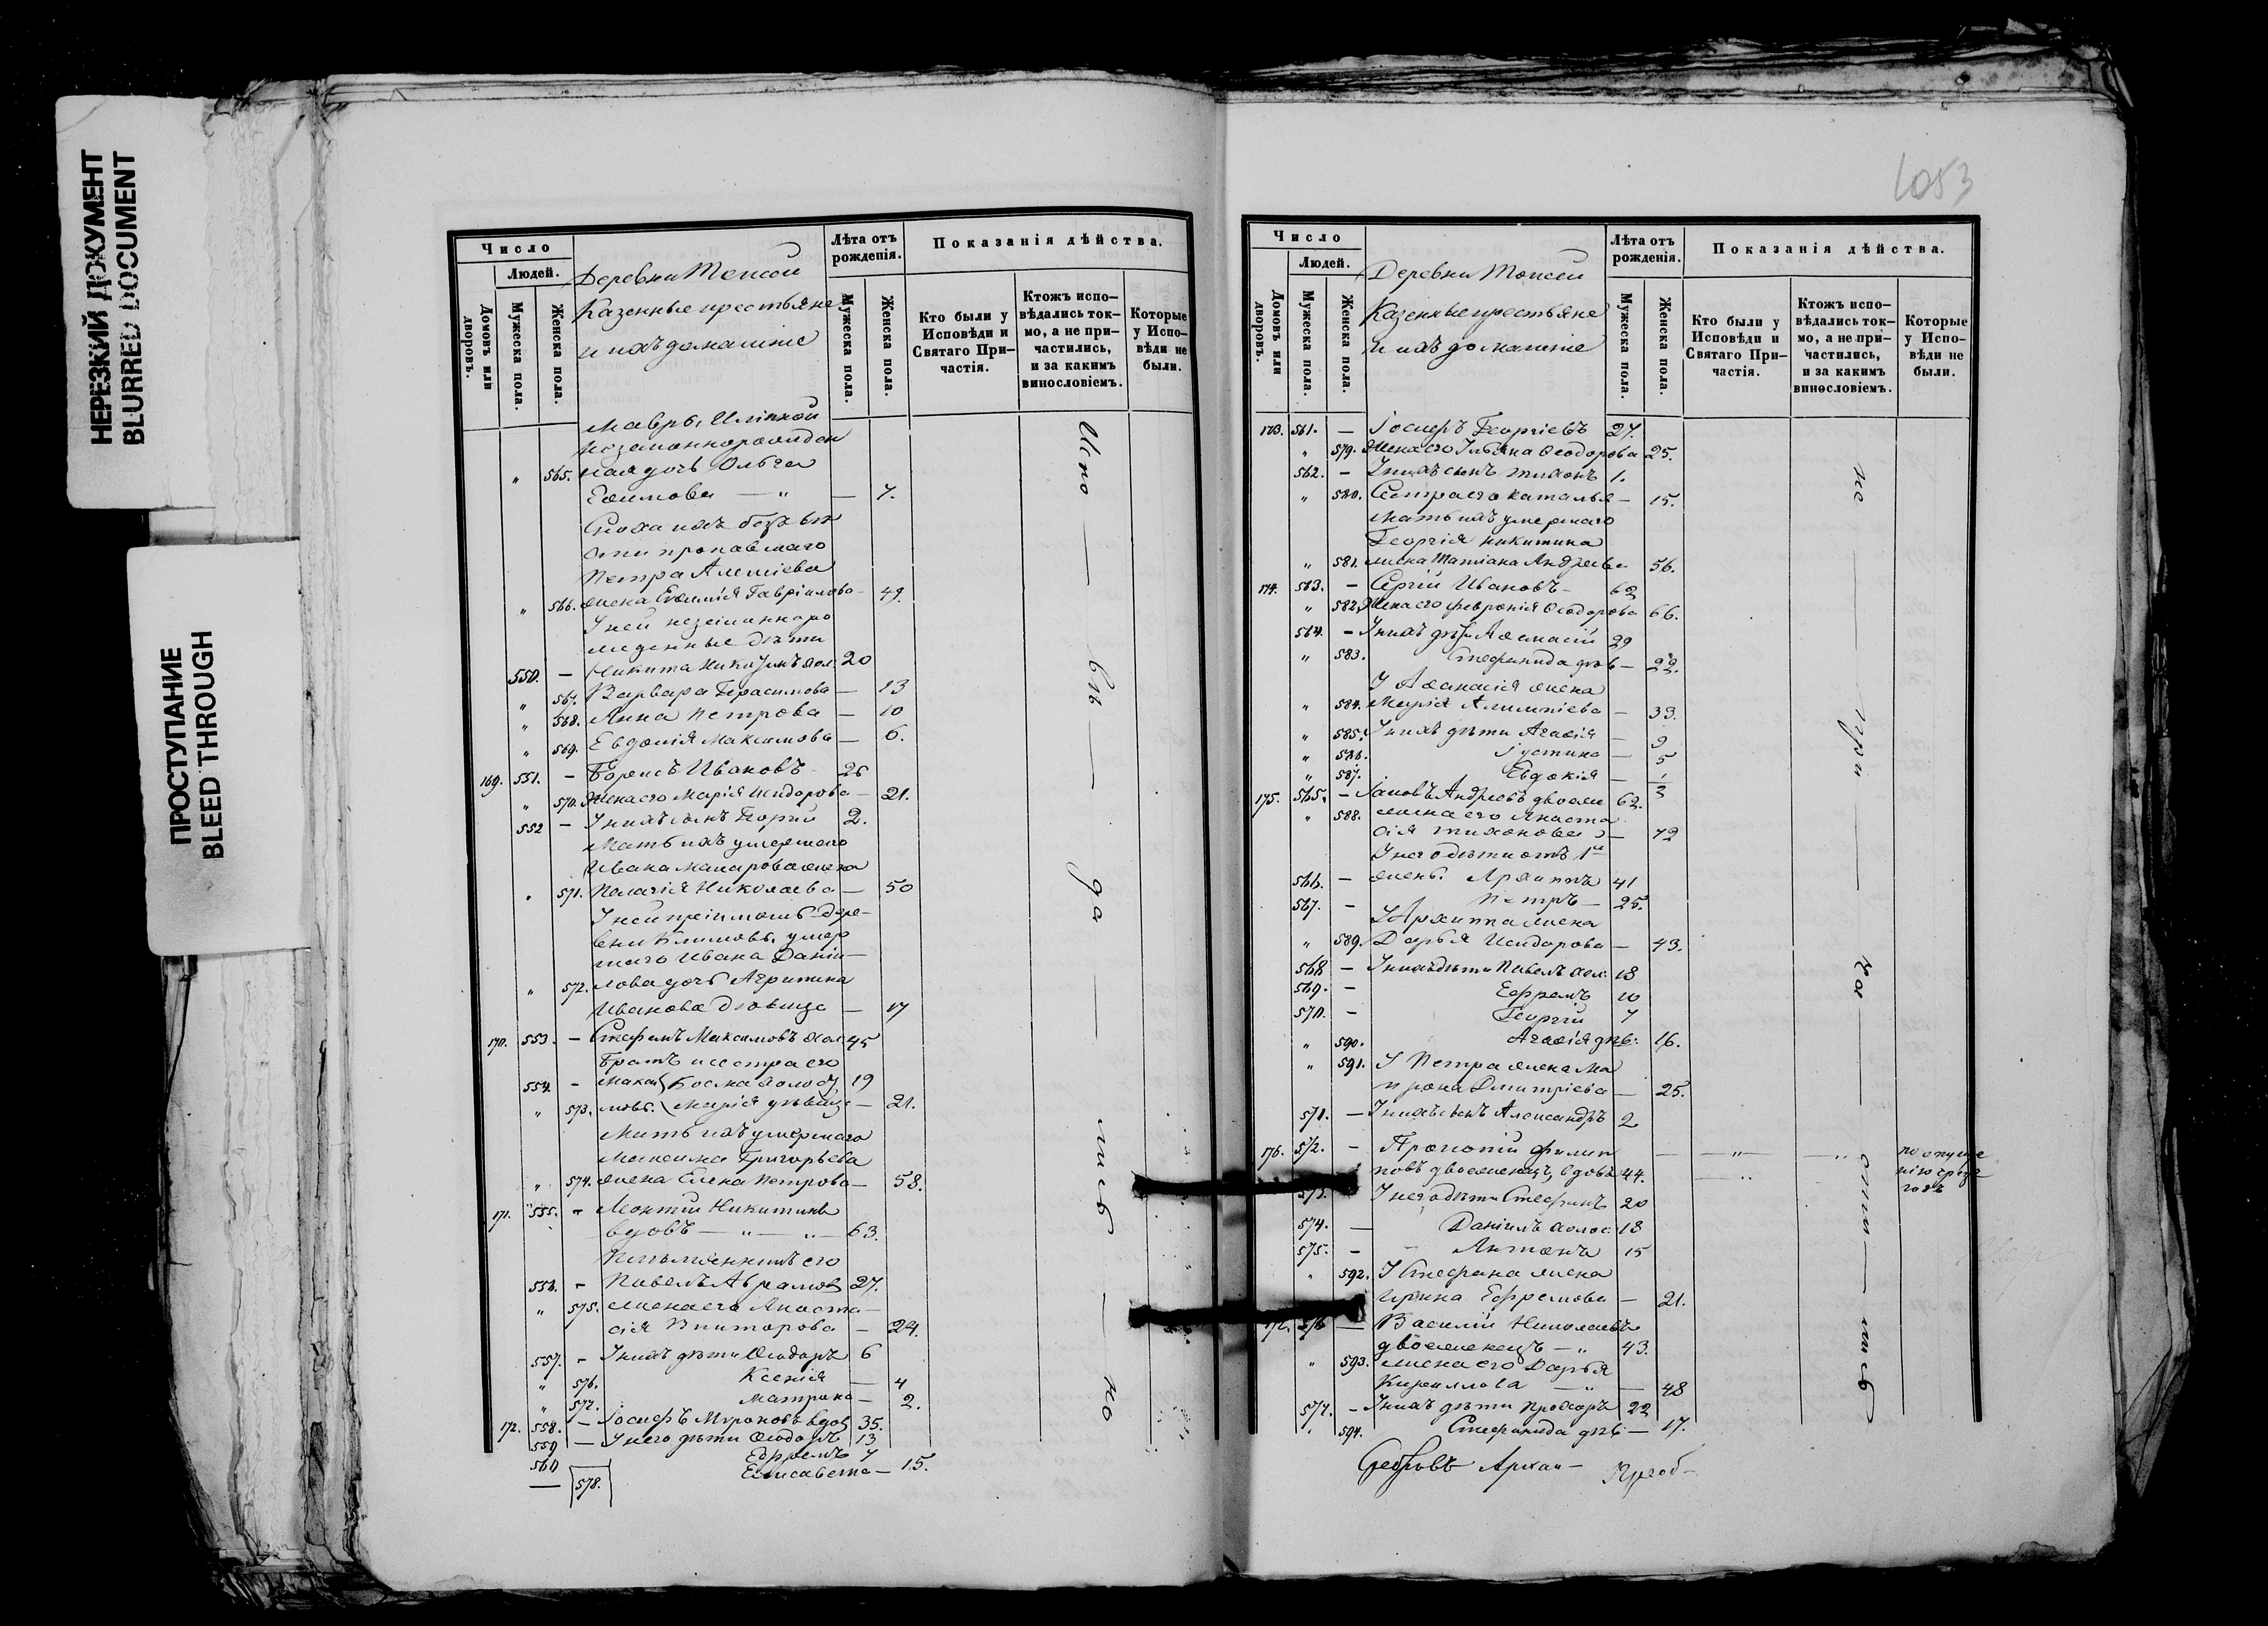 НЕРЕЗКИЙ ДОКУМЕНТ
BLURRED DOCUMENT
ПРОСТУПАНИЕ
BLEED THROUGH
Число
Людей.
Домовъ или дворовъ.
Мужеска пола.
Женска пола.
Деревни
Казенные крестьяне
и ихъ домашніе
Лѣта отъ рожденія.
Мужеска пола.
Женска пола.
Показанія дѣйства.
Кто были у Исповѣди и Святаго Причастія.
Ктожъ исповѣдались токмо, а не причастились, и за какимъ винословіемъ.
Которые у Исповѣди не были.
Мавры
незаконнорожден
" 565. ная дочь Ольга
Ефимова — " — 7.
Сноха ихъ безъ вѣ
сти пропавшаго
Петра
" 566. жена Евфимія Гавріилова — 49.
У ней незаконноро
жденные дѣти
550. — Никита хол. 20
" 567. Варвара Герасимова — 13
" 568. Анна Петрова — 10
" 569. Евдокія Максимова — 6.
169. 551. — Борисъ Ивановъ 26
" 570. Жена его Марія Исидорова — 21.
552 — У нихъ сынъ Георгій 2.
Мать ихъ умершаго
Ивана жена
" 571. Пелагія Николаева — 50
У ней пріимышъ дере-
вни умер
шаго Ивана Даніи-
" 572. лова дочь Агрипина
Иванова дѣвица — 17
170. 553. — Стефанъ Максимовъ хол 45
Братъ и сестра его
554. — Косма холос 19
" 573. Марія дѣвица — 21.
Мать ихъ умершаго
Максима Григорьева
" 574. жена Елена Петрова — 58.
171. 555. — Никитинъ
вдовъ — " — " — 63.
его
556. — Павелъ Аврамов 27.
" 575. жена его Анаста-
сія Викторова — 24.
557. — У нихъ дѣти Ѳеодоръ 6
" 576. Ксенія — 4
" 577. Матрона — 2.
172. 558. — Іосифъ Мироновъ вдов 35.
559 — У него дѣти Ѳеодоръ 13
560 Ефремъ 7
— 578. Елисавета — 15.
Испо — вѣ — да — лись — по
1053
Число
Людей.
Домовъ или дворовъ.
Мужеска пола.
Женска пола.
Деревни
Казенные крестьяне
и ихъ домашніе
Лѣта отъ рожденія.
Мужеска пола.
Женска пола.
Показанія дѣйства.
Кто были у Исповѣди и Святаго Причастія.
Ктожъ исповѣдались токмо, а не причастились, и за какимъ винословіемъ.
Которые у Исповѣди не были.
173. 561. — Іосифъ Георгіевъ 27.
" 579. Жена его Ульяна Ѳеодорова 25.
562. — У нихъ сынъ Тихонъ 1.
" 580. Сестра его Наталья — 15.
Мать ихъ умершаго
Георгія Никитина
" 581. жена Татіана Андреева 56.
174. 563. — Сергій Ивановъ — 62
" 582. Жена его Февронія Ѳеодорова 66.
564. — У нихъ дѣти Аѳанасій 29
" 583. Стефанида дѣв — 22.
У Аѳанасія жена
" 584. Марія — 33.
" 585. У нихъ дѣти Агафія — 9
" 586. Іустина — 5
" 587. Евдокія — 1/3
175. 565. — Іаковъ Андреевъ двоеже 62.
" 588. жена его Анаста
сія Тихонова — 72
У него дѣти отъ 1й
566. — жены Архиппъ 41
567. — Петръ — 25.
У Архиппа жена
" 589. Дарья Исидорова — 43.
568 — У нихъ дѣти Павелъ хол. 18
569. — Ефремъ 10
570. — Георгій 7
" 590. Агафія дѣв. 16.
" 591. У Петра жена Ма
трона Дмитріева — 25.
571. — У нихъ сынъ Александръ 2
176. 572. — Прокопій Филип
повъ двоеженецъ, вдовъ 44.
573. У него дѣти Стефанъ 20
574. — Даніилъ холос. 18
575. — Антонъ 15
" 592. У Стефана жена
Ирина Ефремова — 21.
576 — Василій Николаевъ
двоеженецъ — " 43.
" 593. жена его Дарья
Кириллова — " — 48
577. — У нихъ дѣти Прохоръ 22
" 594. Стефанида дѣв — 17.
не — при — ча — сти — лись